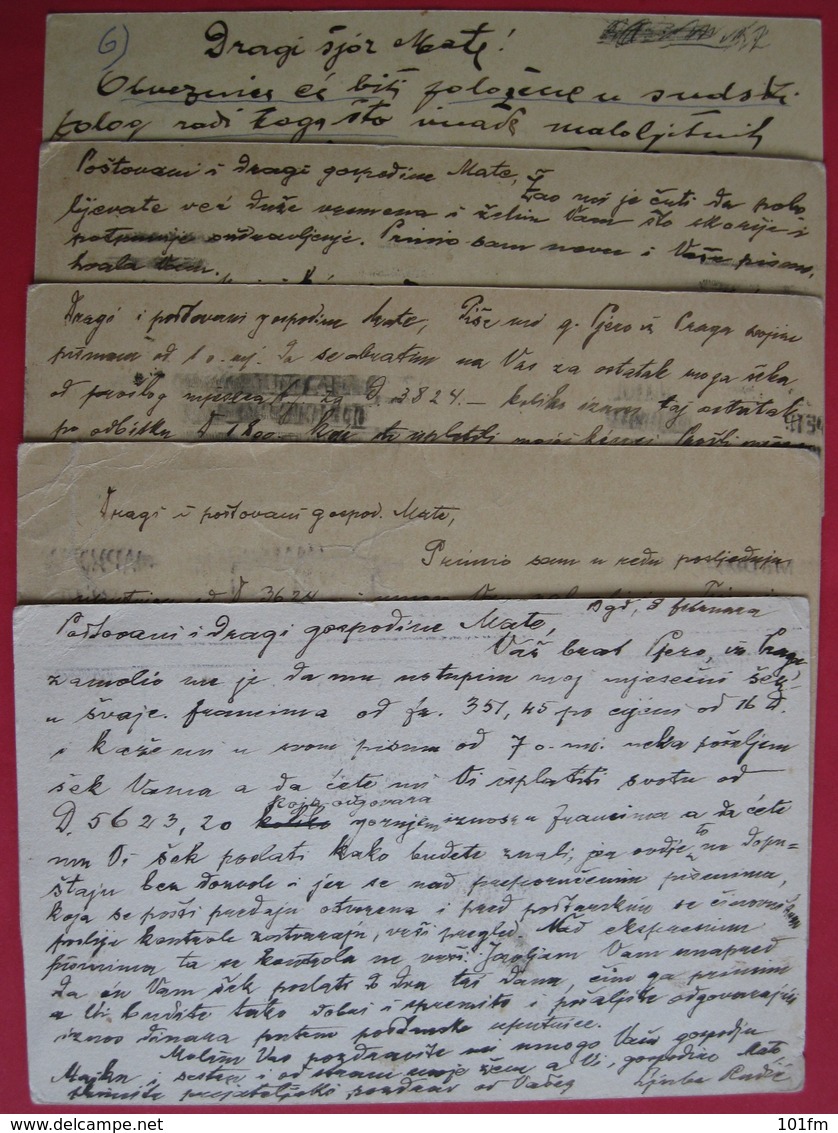 6)
Dragi šjor Mate!
Obveznice će biti položene u sudski
polog radi toga što imade maloljetnih
Poštovani i dragi gospodine Mate,
Žao mi je čuti da pobo
lijevate već duže vremena i želim Vam što skorije i
potpunije ozdravljenje. Primio sam novu i Vaše pismo,
hvala Vam.
Dragi i poštovani gospodine Mate, Piše mi g. Pjero iz Praga svojim
pismom od 1 o. mj. da se obratim na Vas za ostatak moga šeka,
od prošlog mjeseca za D. 3824.- koliko iznosi taj ostatak
po odbitku D 1800.-
Dragi i poštovani gospod. Mate,
Primio sam u redu posljednju
od D 3624
Bgd, 8 februara
Poštovani i dragi gospodine Mate,
Vaš brat Pjero, iz Praga
zamolio me je da mu ustupim moj mjesečni šek
u švajc. francima od fr. 351,45 po cijeni od 16 D.
i kaže mi u svom pismu od 7 o. mj. neka pošaljem
šek Vama a da ćete mi Vi isplatiti svotu od
koja odgovara
D. 5623,20 gornjem iznosu u francima a da ćete
mu Vi šek poslati kako budete znali, jer ovdje to ne dopu-
štaju bez dozvole i jer se nad preporučenim pismima,
koja se pošti predaju otvorena i pred poštarskim se činovnikom
poslije kontrole zatvaraju, vrši pregled. Nad ekspresnim
pismima ta se kontrola ne vrši. Javljam Vam unapred
da ću Vam šek poslati za dva tri dana, čim ga primim
a Vi budite tako dobri i spremite i pošaljite odgovarajući
iznos dinara putem poštanske uputnice.
Molim Vas pozdravite mi mnogo Vašu gospodju
Majku, i sestru i od strane moje žene a Vi, gospodine Mate
primite prijateljski pozdrav od Vašeg Ljuba
101fm